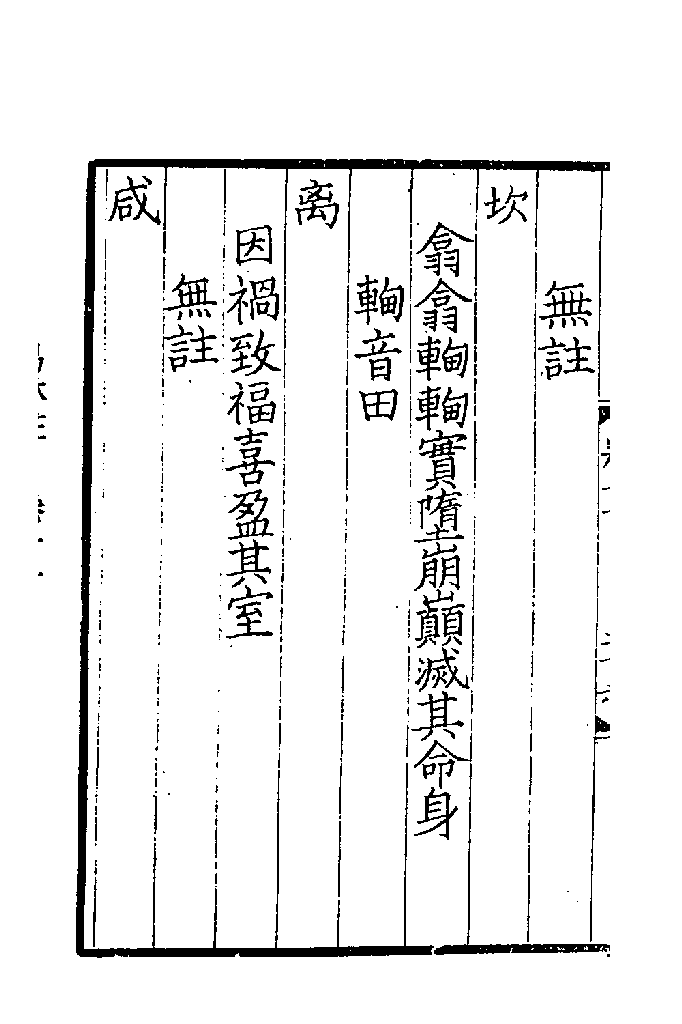 無註
坎
翕翕實墮崩巔滅其命身
音田
离
因禍致福喜盈其室
無註
咸